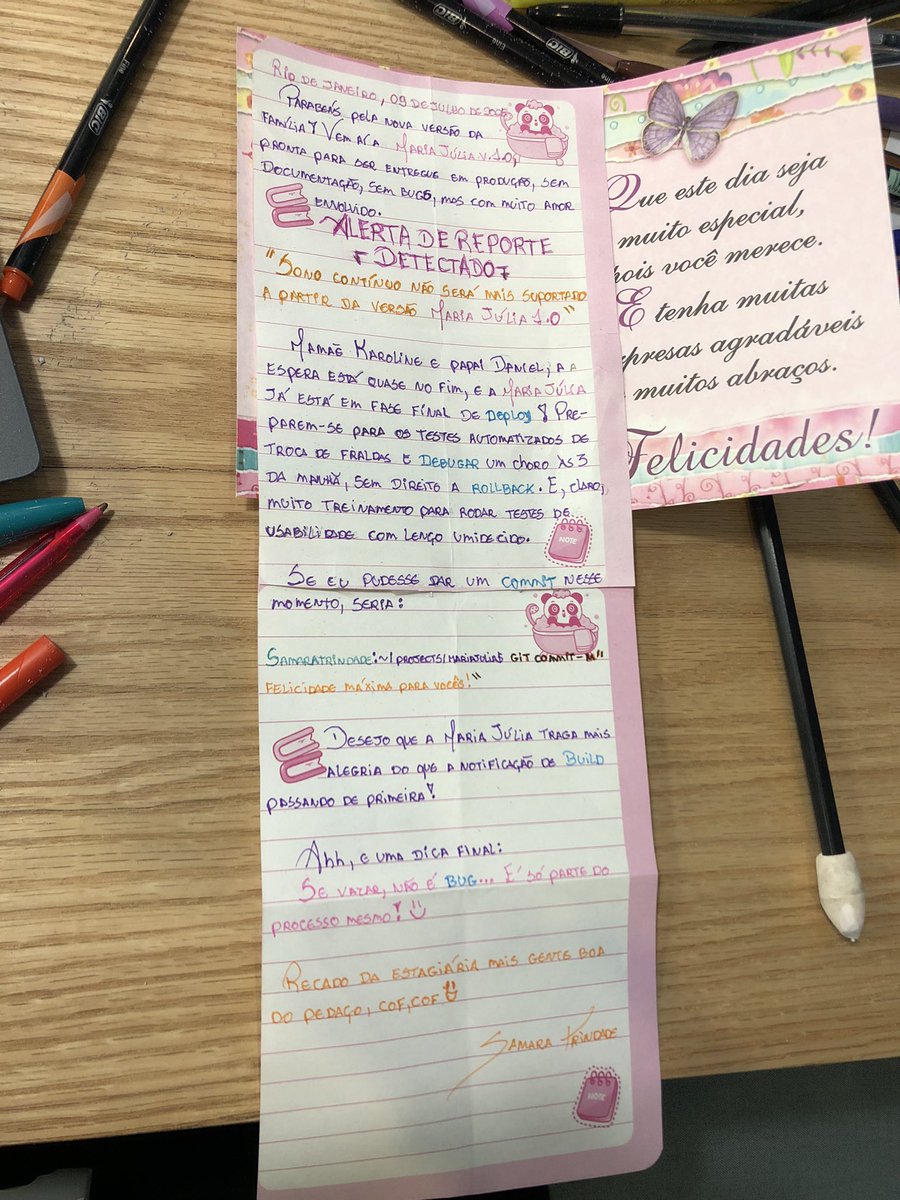 Rio de Janeiro, 09 de Julho de 2025
Parabéns pela nova versão da
família! Vem aí a Maria Júlia v.1.0,
pronta para ser entregue em produção, sem
documentação, sem bugs, mas com muito amor
envolvido.
Alerta de Reporte
Detectado
"Sono contínuo não será mais suportado
a partir da versão Maria Júlia 1.0"
Mamãe Karoline e papai Daniel, a a
espera está quase no fim, e a Maria Júlia
já está em fase final de Deploy! Pre-
parem-se para os testes automatizados de
troca de fraldas e debugar um choro às 3
da manhã, sem direito a rollback. E, claro,
muito treinamento para rodar testes de
usabilidade com lenço umidecido.
NOTE
Se eu pudesse dar um commit nesse
momento, seria:
SamaraTrindade:~/projects/mariajulia$ git commit -m"
Felicidade máxima para vocês!"
Desejo que a Maria Júlia traga mais
alegria do que a notificação de Build
passando de primeira!
Ahh, e uma dica final:
Se vazar, não é bug... É só parte do
processo mesmo!
Recado da estagiária mais gente boa
do pedaço, cof, cof
Samara Trindade
NOTE
Que este dia seja
muito especial,
pois você merece.
E tenha muitas
presas agradáveis
muitos abraços.
Felicidades!
BIC
Fine
BIC
Fine
BIC